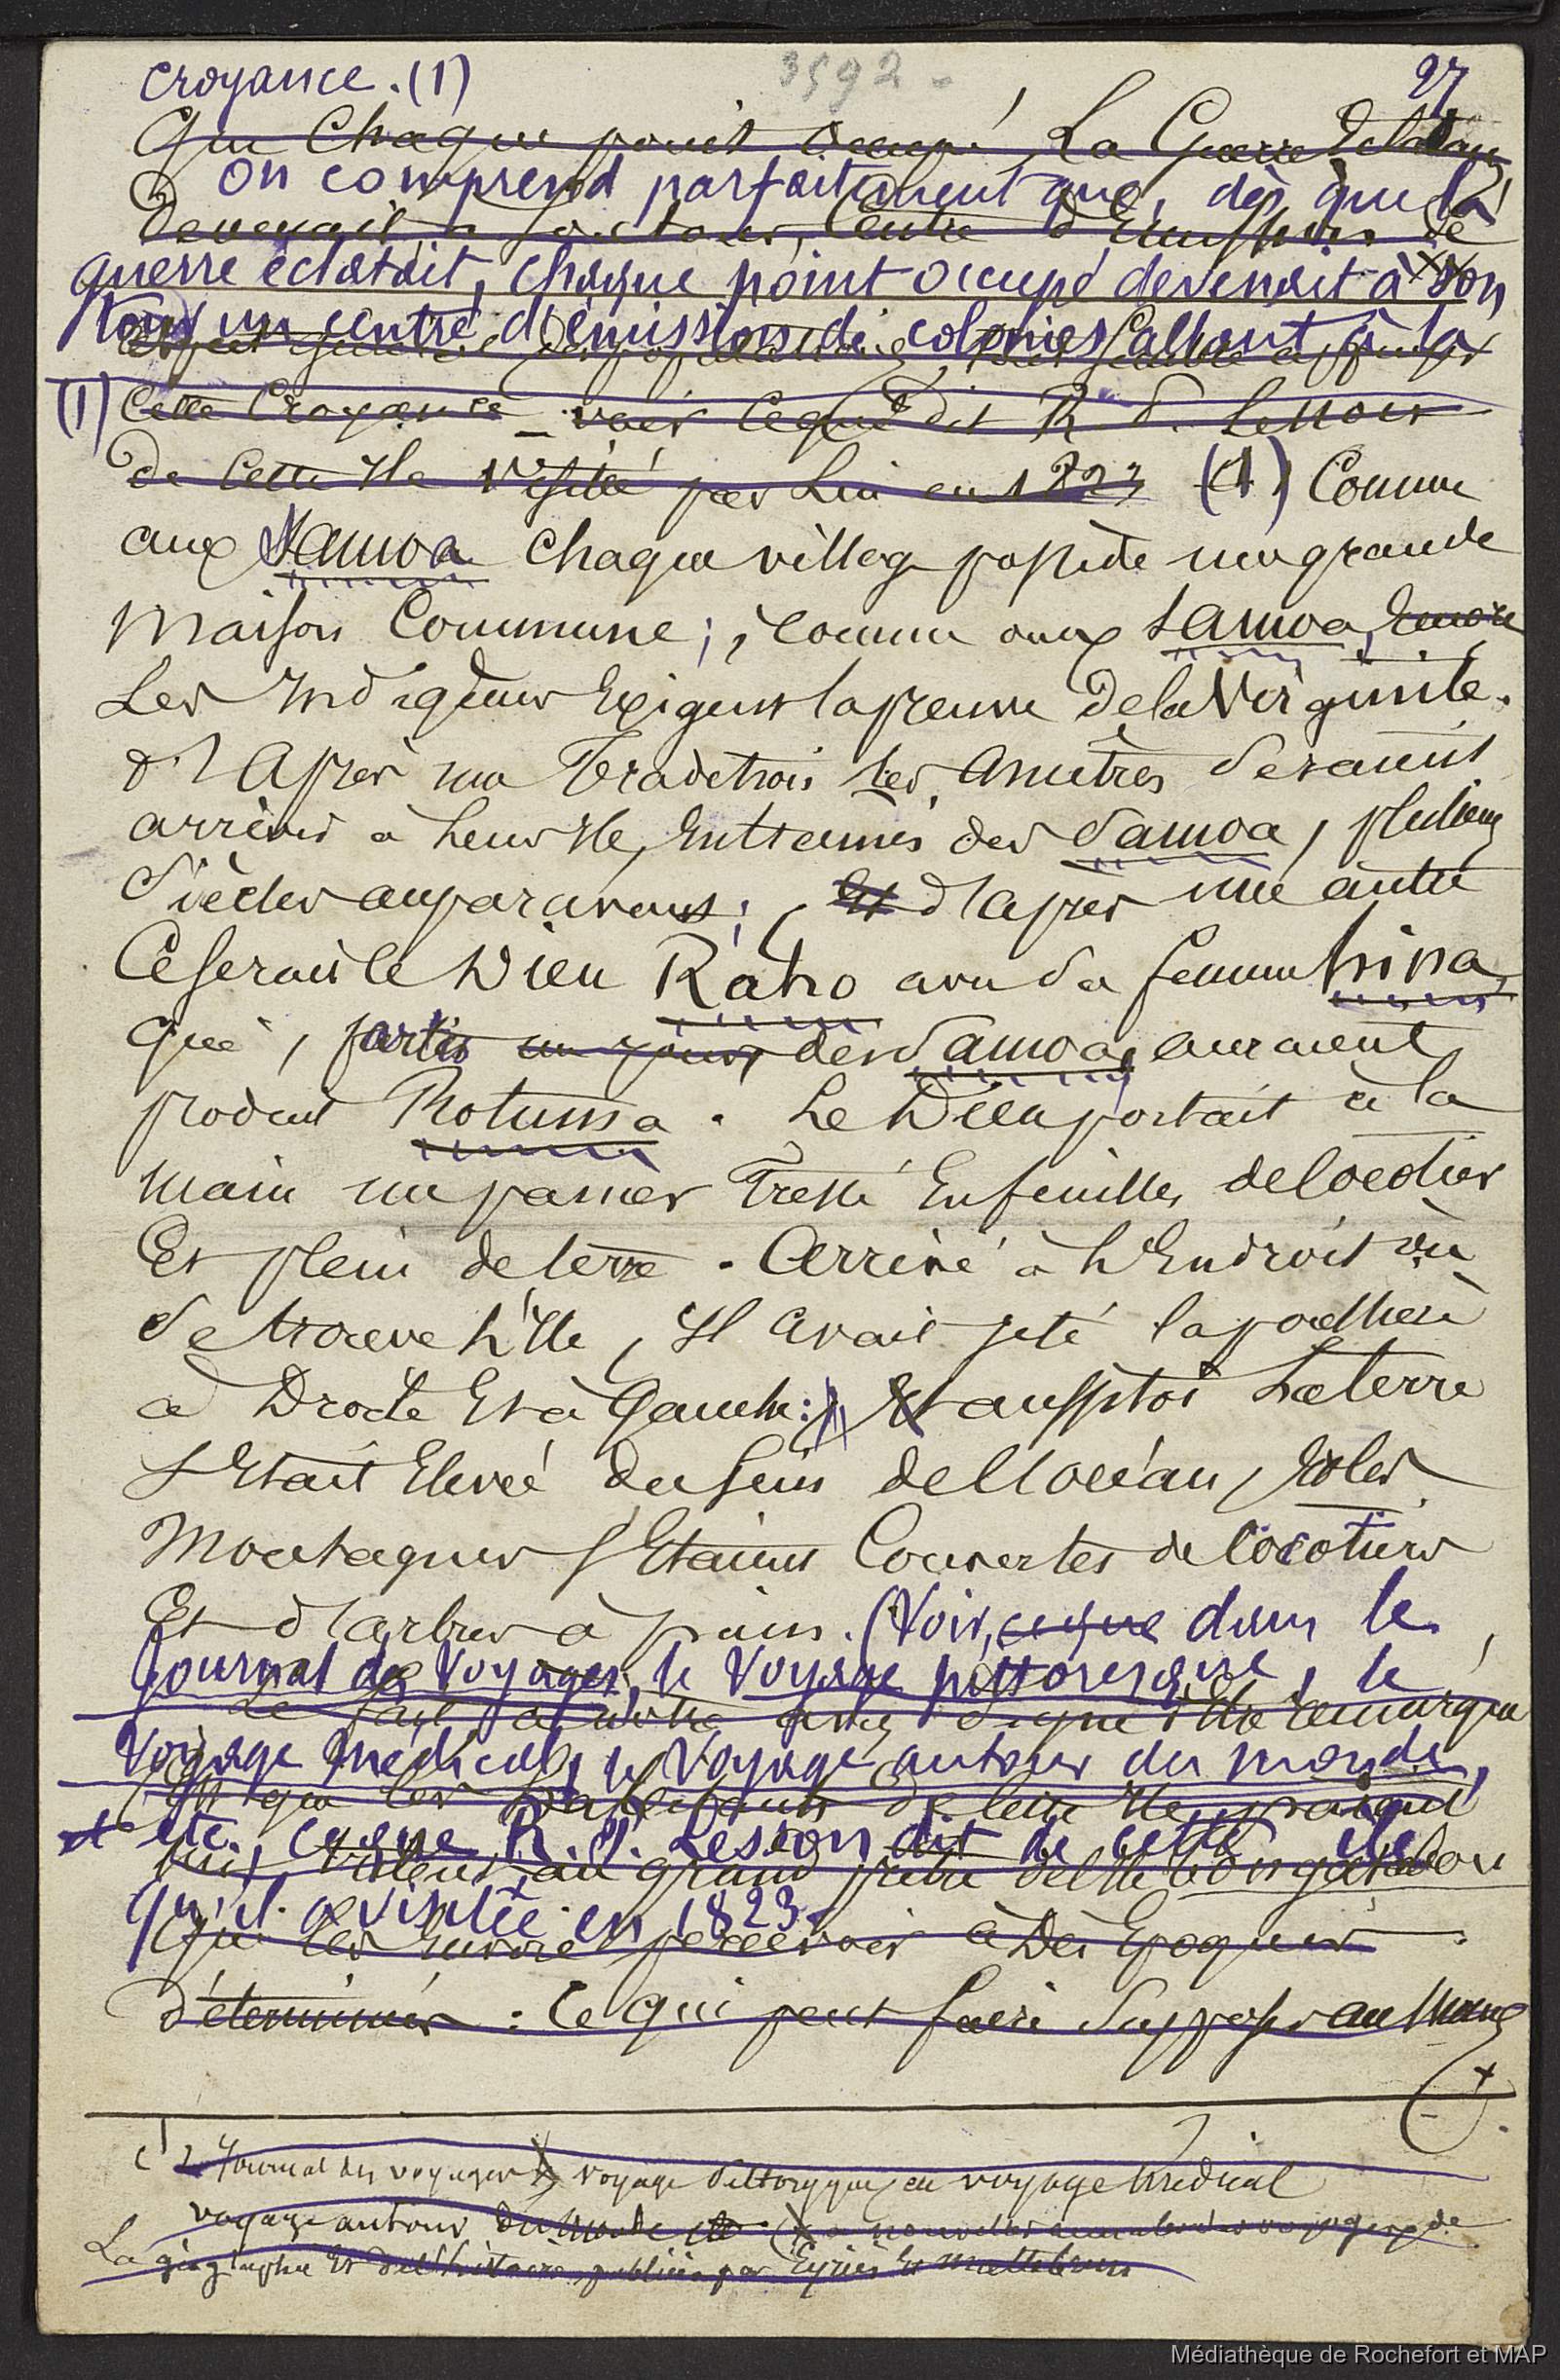 croyance. (1)
3592 -
97
Que Chaque point occupé, La Guerre
On comprend parfaitement que, dès que la
devenait à Son tour, Centre d'Emission de
guerre éclatait, chaque point occupé devenait à son
tour un centre d'émission de colonies allant à la
(1) Cette Croyance - voir ce que dit R. P. Lesson
de Cette Ile visitée par Lui en 1823 (1) Comme
aux Samoa Chaque village possède une grande
Maison Commune; comme aux Samoa, Encore
Les Indigènes Exigent la preuve de la Virginité.
d'Après une Tradition Les Ancêtres Seraient
arrivés à Leur Ile, Entrainés des Samoa, plusieurs
Siècles auparavant; Et d'après une autre
Ce serait le Dieu Raho avec Sa femme hina,
qui, partis un jour, des Samoa, auraient
produit Rotuma. Le Dieu portait à la
main un panier Tressé En feuilles de Cocotier
Et plein de terre. Arrivé à L'Endroit où
Se trouve L'Ile, Il avait jeté la poussière
à Droite Et à Gauche: Et aussitôt La terre
S'Etait Elevée du Sein de l'océan, Et les
Montagnes S'Etaient Couvertes de Cocotiers
Et d'arbres à pain. (Voir, ce que dans le
Journal des Voyages, le Voyage pittoresque, le
Le fait assez digne de remarque
Voyage médical, le Voyage autour du monde,
Est que les habitants de cette Ile
et etc. ce que R. P. Lesson dit de cette île
au grand
qu'il a visitée en 1823.
Qui les Envoie percevoir à Des Epoques
déterminées : Ce qui peut faire Supposer au moins
+
(1) Journal des voyages, voyage Pittoresque, ou voyage Médical
voyage autour Du Monde etc. nouvelles annales des voyages, de
La géographie Et de l'histoire, publiées par Eyriès Et maltebrun
Médiathèque de Rochefort et MAP